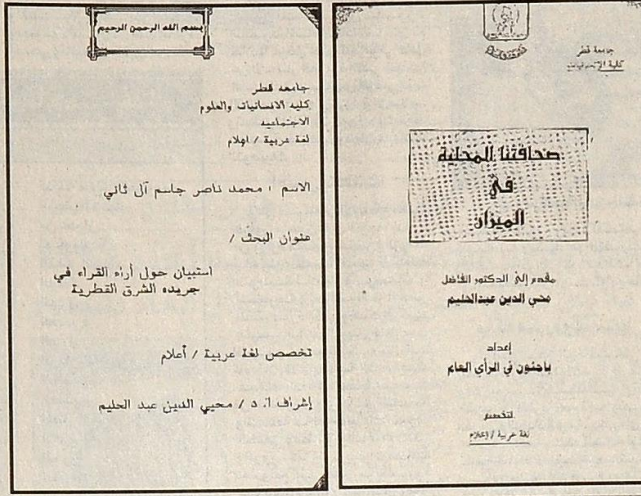 جامعة قطر
كلية الإنسانيات
صحافتنا المحلية
في
الميزان
مقدم إلى الدكتور الفاضل
محي الدين عبدالحليم
إعداد
باحثون في الرأي العام
لتخصص
لغة عربية / إعلام
بسم الله الرحمن الرحيم
جامعه قطر
كليه الانسانيات والعلوم
الاجتماعيه
لغة عربية / اعلام
الاسم : محمد ناصر جاسم آل ثاني
عنوان البحث /
استبيان حول أراء القراء في
جريده الشرق القطرية
تخصص لغة عربية / أعلام
إشراف أ. د / محيي الدين عبد الحليم